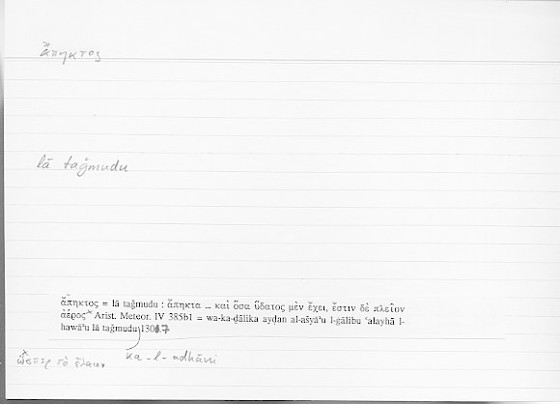 ἄπηκτος
lā taǧmudu
ἄπηκτος = lā taǧmudu : ἄπηκτα ... καὶ ὅσα ὕδατος μὲν ἔχει, ἔστιν δὲ πλεῖον
ἀέρος Arist. Meteor. IV 385b1 = wa-ka-ḏālika ayḍan al-ašyāʾu l-ġālibu ʿalayhā l-
hawāʾu lā taǧmudu
ὥσπερ τὸ ἔλαιον ka-l-adhāni